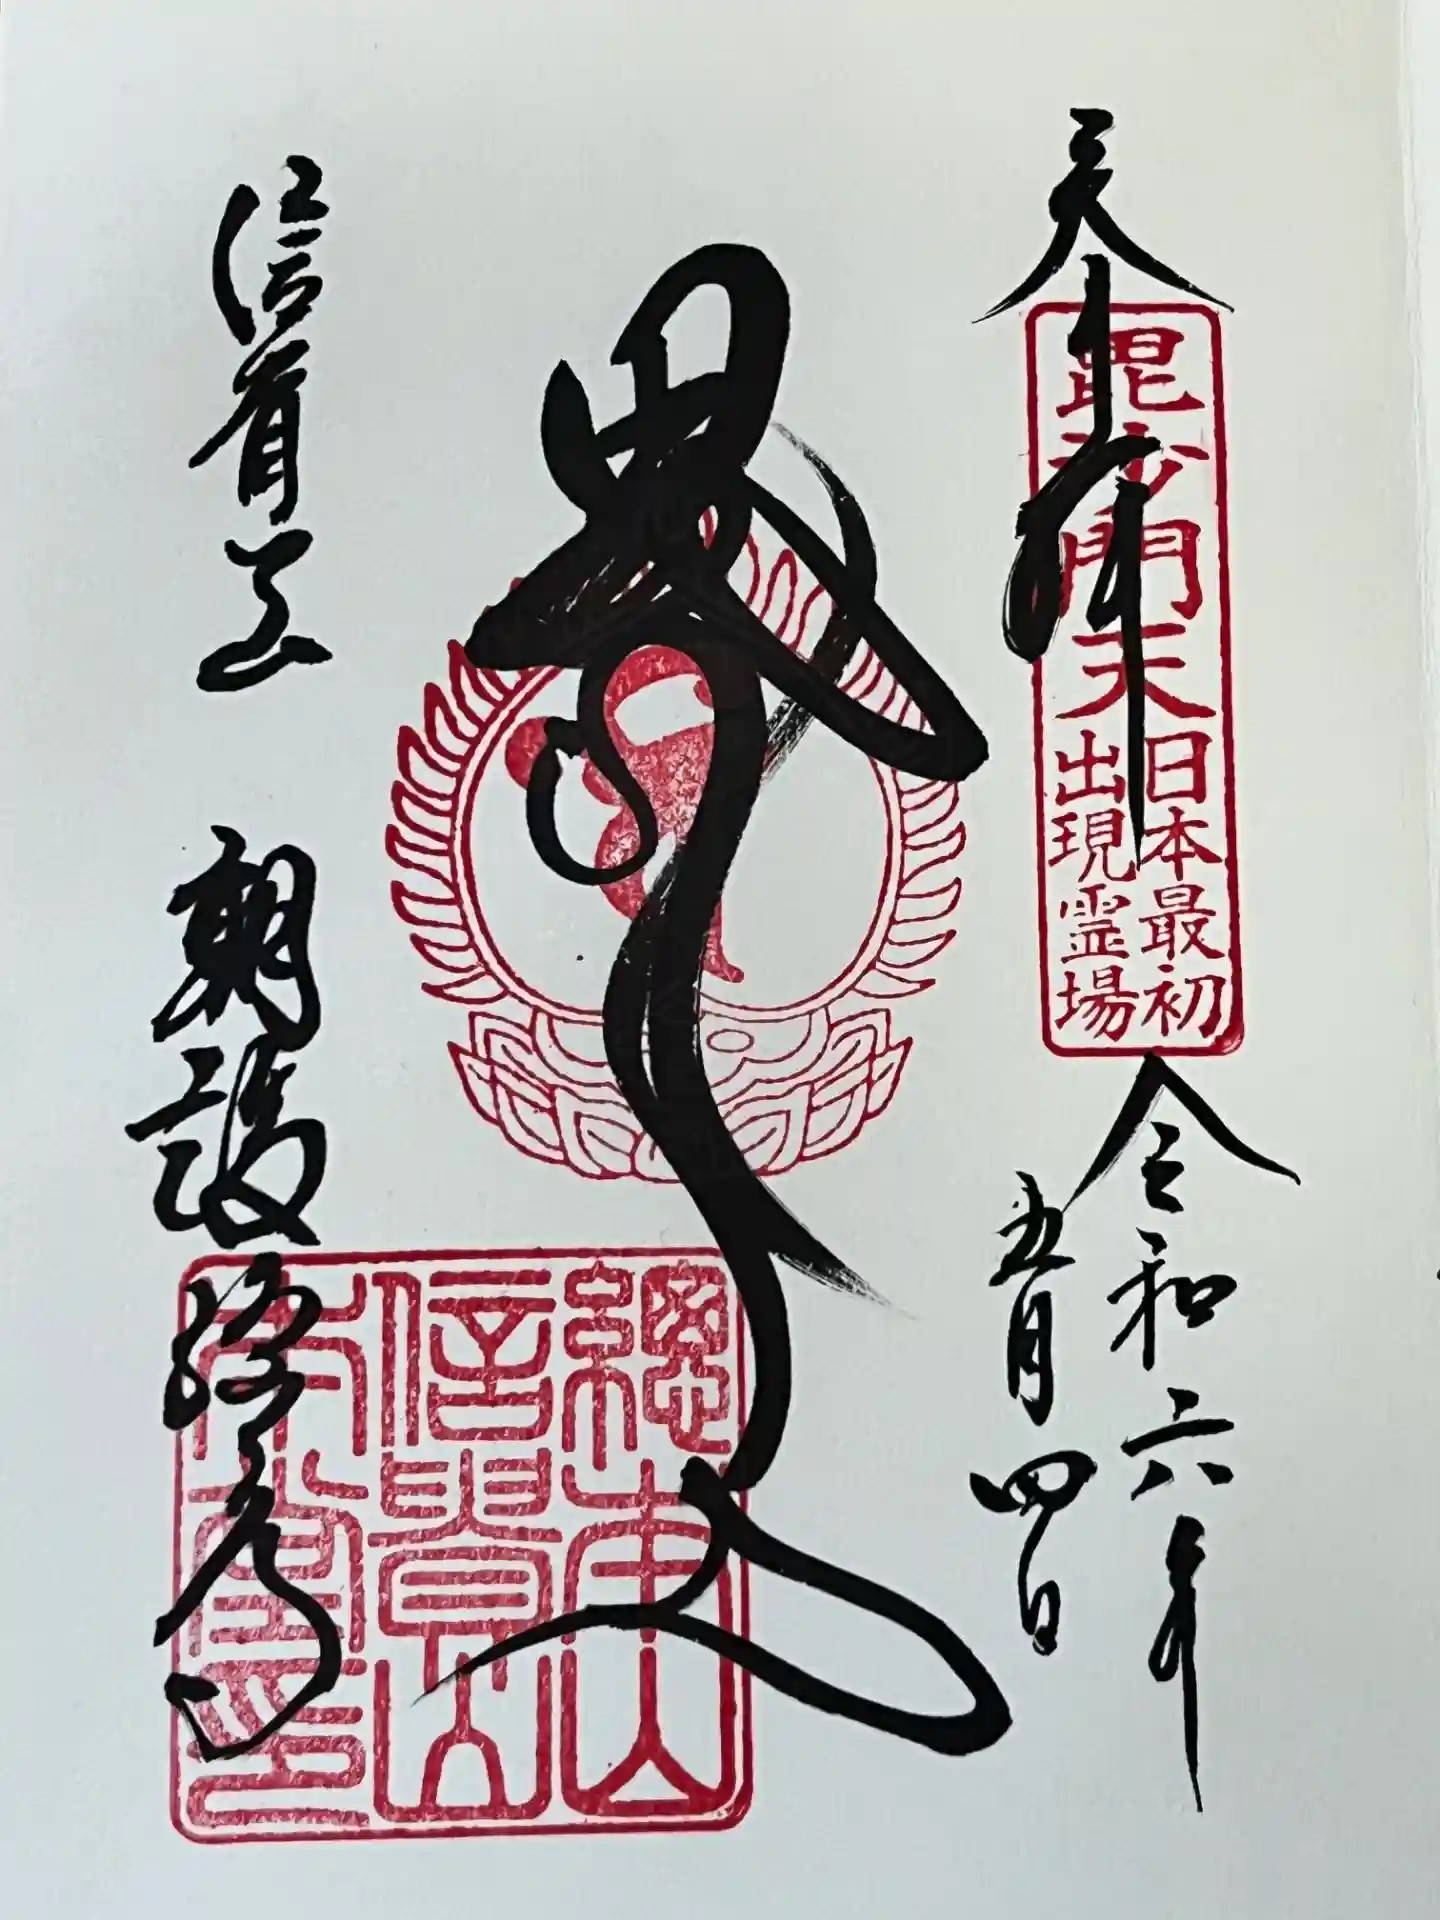 奉拝
毘沙門天
日本最初
出現霊場
令和六年
五月四日
毘沙門天
信貴山 朝護孫子寺
總本山
信貴山
本堂印